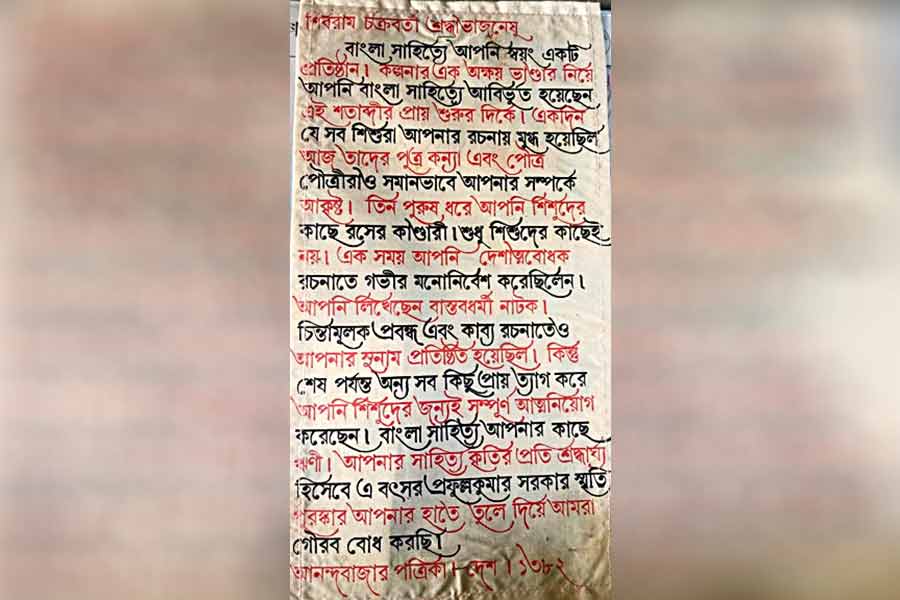 শিবরাম চক্রবর্তী শ্রদ্ধাভাজনেষু
বাংলা সাহিত্যে আপনি স্বয়ং একটি
প্রতিষ্ঠান। কল্পনার এক অক্ষয় ভাণ্ডার নিয়ে
আপনি বাংলা সাহিত্যে আবির্ভূত হয়েছেন
এই শতাব্দীর প্রায় শুরুর দিকে। একদিন
যে সব শিশুরা আপনার রচনায় মুগ্ধ হয়েছিল
আজ তাদের পুত্র কন্যা এবং পৌত্র
পৌত্রীরাও সমানভাবে আপনার সম্পর্কে
আকৃষ্ট। তিন পুরুষ ধরে আপনি শিশুদের
কাছে রসের কাণ্ডারী। শুধু শিশুদের কাছেই
নয়। এক সময় আপনি দেশাত্মবোধক
রচনাতে গভীর মনোনিবেশ করেছিলেন।
আপনি লিখেছেন বাস্তবধর্মী নাটক।
চিন্তামূলক প্রবন্ধ এবং কাব্য রচনাতেও
আপনার সুনাম প্রতিষ্ঠিত হয়েছিল। কিন্তু
শেষ পর্যন্ত অন্য সব কিছু প্রায় ত্যাগ করে
আপনি শিশুদের জন্যই সম্পূর্ণ আত্মনিয়োগ
করেছেন। বাংলা সাহিত্য আপনার কাছে
ঋণী। আপনার সাহিত্য কৃতির প্রতি শ্রদ্ধার্ঘ্য
হিসেবে এ বৎসর প্রফুল্লকুমার সরকার স্মৃতি
পুরস্কার আপনার হাতে তুলে দিয়ে আমরা
গৌরব বোধ করছি।
আনন্দবাজার পত্রিকা। দেশ। ১৩৮২